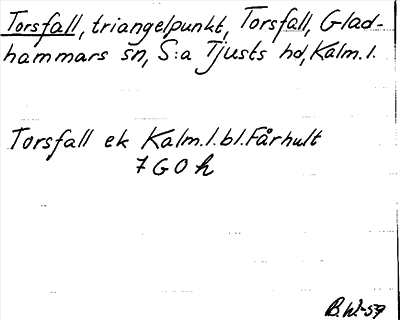 Torsfall, triangelpunkt, Torsfall, Glad-
hammars sn, S:a Tjusts hd, Kalm.l.
Torsfall ek Kalm.l.bl.Fårhult
7 G 0 h
B.W.-59